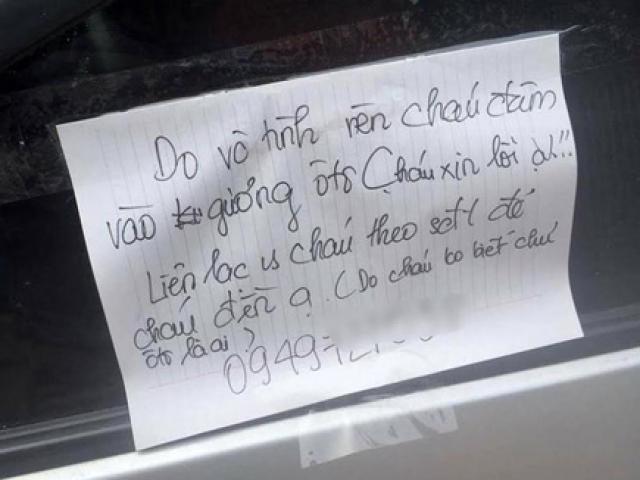 Do vô tình nên cháu đâm
vào gương ôtô (cháu xin lỗi ạ!!
Liên lạc vs cháu theo sđt để
cháu đền ạ. (Do cháu ko biết chủ
ôtô là ai)
0949